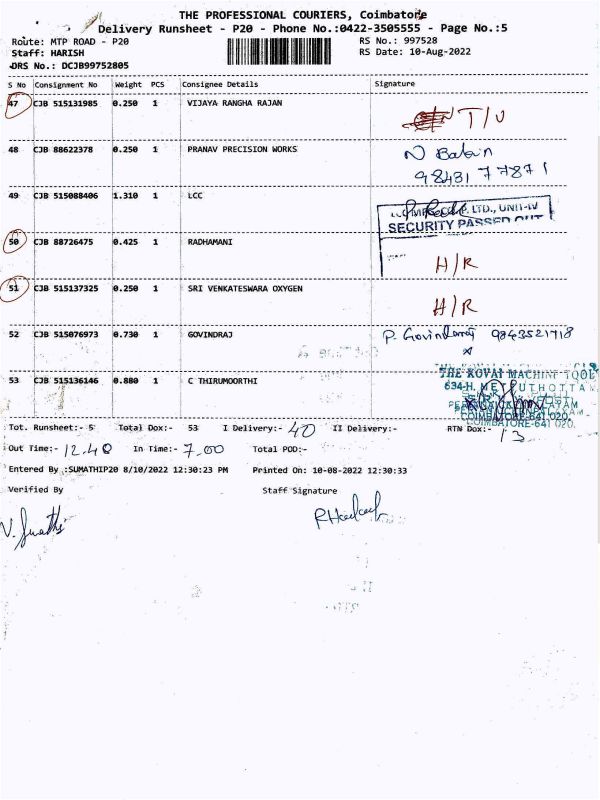 THE PROFESSIONAL COURIERS, Coimbatore
Delivery Runsheet - P20 - Phone No.:0422-3505555 - Page No.:5
Route: MTP ROAD - P20 RS No.: 997528
Staff: HARISH RS Date: 10-Aug-2022
DRS No.: DCJB99752805
S No Consignment No Weight PCS Consignee Details Signature
47 CJB 515131985 0.250 1 VIJAYA RANGHA RAJAN
T/U
48 CJB 88622378 0.250 1 PRANAV PRECISION WORKS
98431 77871
49 CJB 515088406 1.310 1 LCC
LTD., UNIT-IV
SECURITY PASSED OUT
50 CJB 88726475 0.425 1 RADHAMANI
H/R
51 CJB 515137325 0.250 1 SRI VENKATESWARA OXYGEN
H/R
52 CJB 515076973 0.730 1 GOVINDRAJ P. Govindaraj 9843521718
THE KOVAI MACHINE TOOL
53 CJB 515136146 0.880 1 C THIRUMOORTHI
COIMBATORE-641 020.
Tot. Runsheet:- 5 Total Dox:- 53 I Delivery:- 40 II Delivery:- RTN Dox:- 13
Out Time:- 12.40 In Time:- 7.00 Total POD:-
Entered By :SUMATHIP20 8/10/2022 12:30:23 PM Printed On: 10-08-2022 12:30:33
Verified By Staff Signature